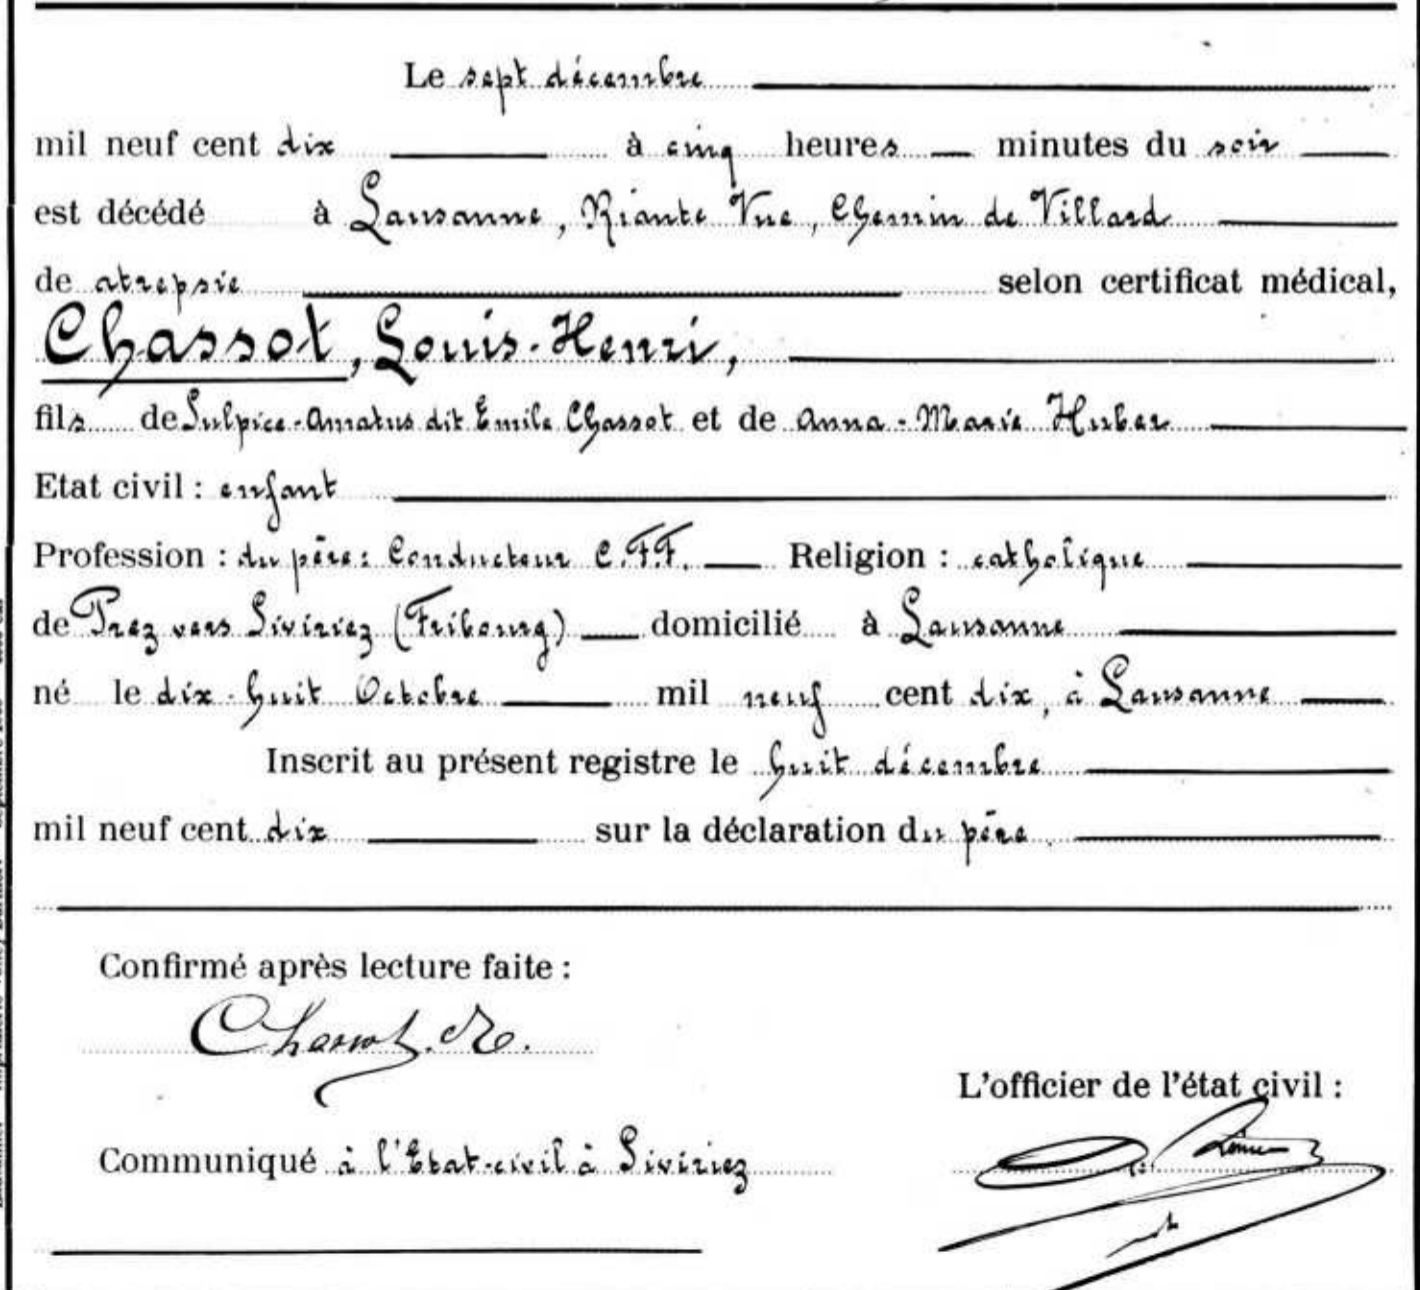 Le sept décembre
mil neuf cent dix à cinq heures minutes du soir
est décédé à Lausanne, Riante Vue, Chemin de Villard
de atrepsie selon certificat médical,
Chassot, Louis-Henri,
fils de Sulpice-Amatus dit Emile Chassot et de Anna-Marie Huber
Etat civil : enfant
Profession : du père: Conducteur C.F.F. Religion : catholique
de Prez vers Siviriez (Fribourg) domicilié à Lausanne
né le dix-huit Octobre mil neuf cent dix, à Lausanne
Inscrit au présent registre le huit décembre
mil neuf cent dix sur la déclaration du père.
Confirmé après lecture faite :
Chassot
L'officier de l'état civil :
Communiqué à l'Etat-civil à Siviriez